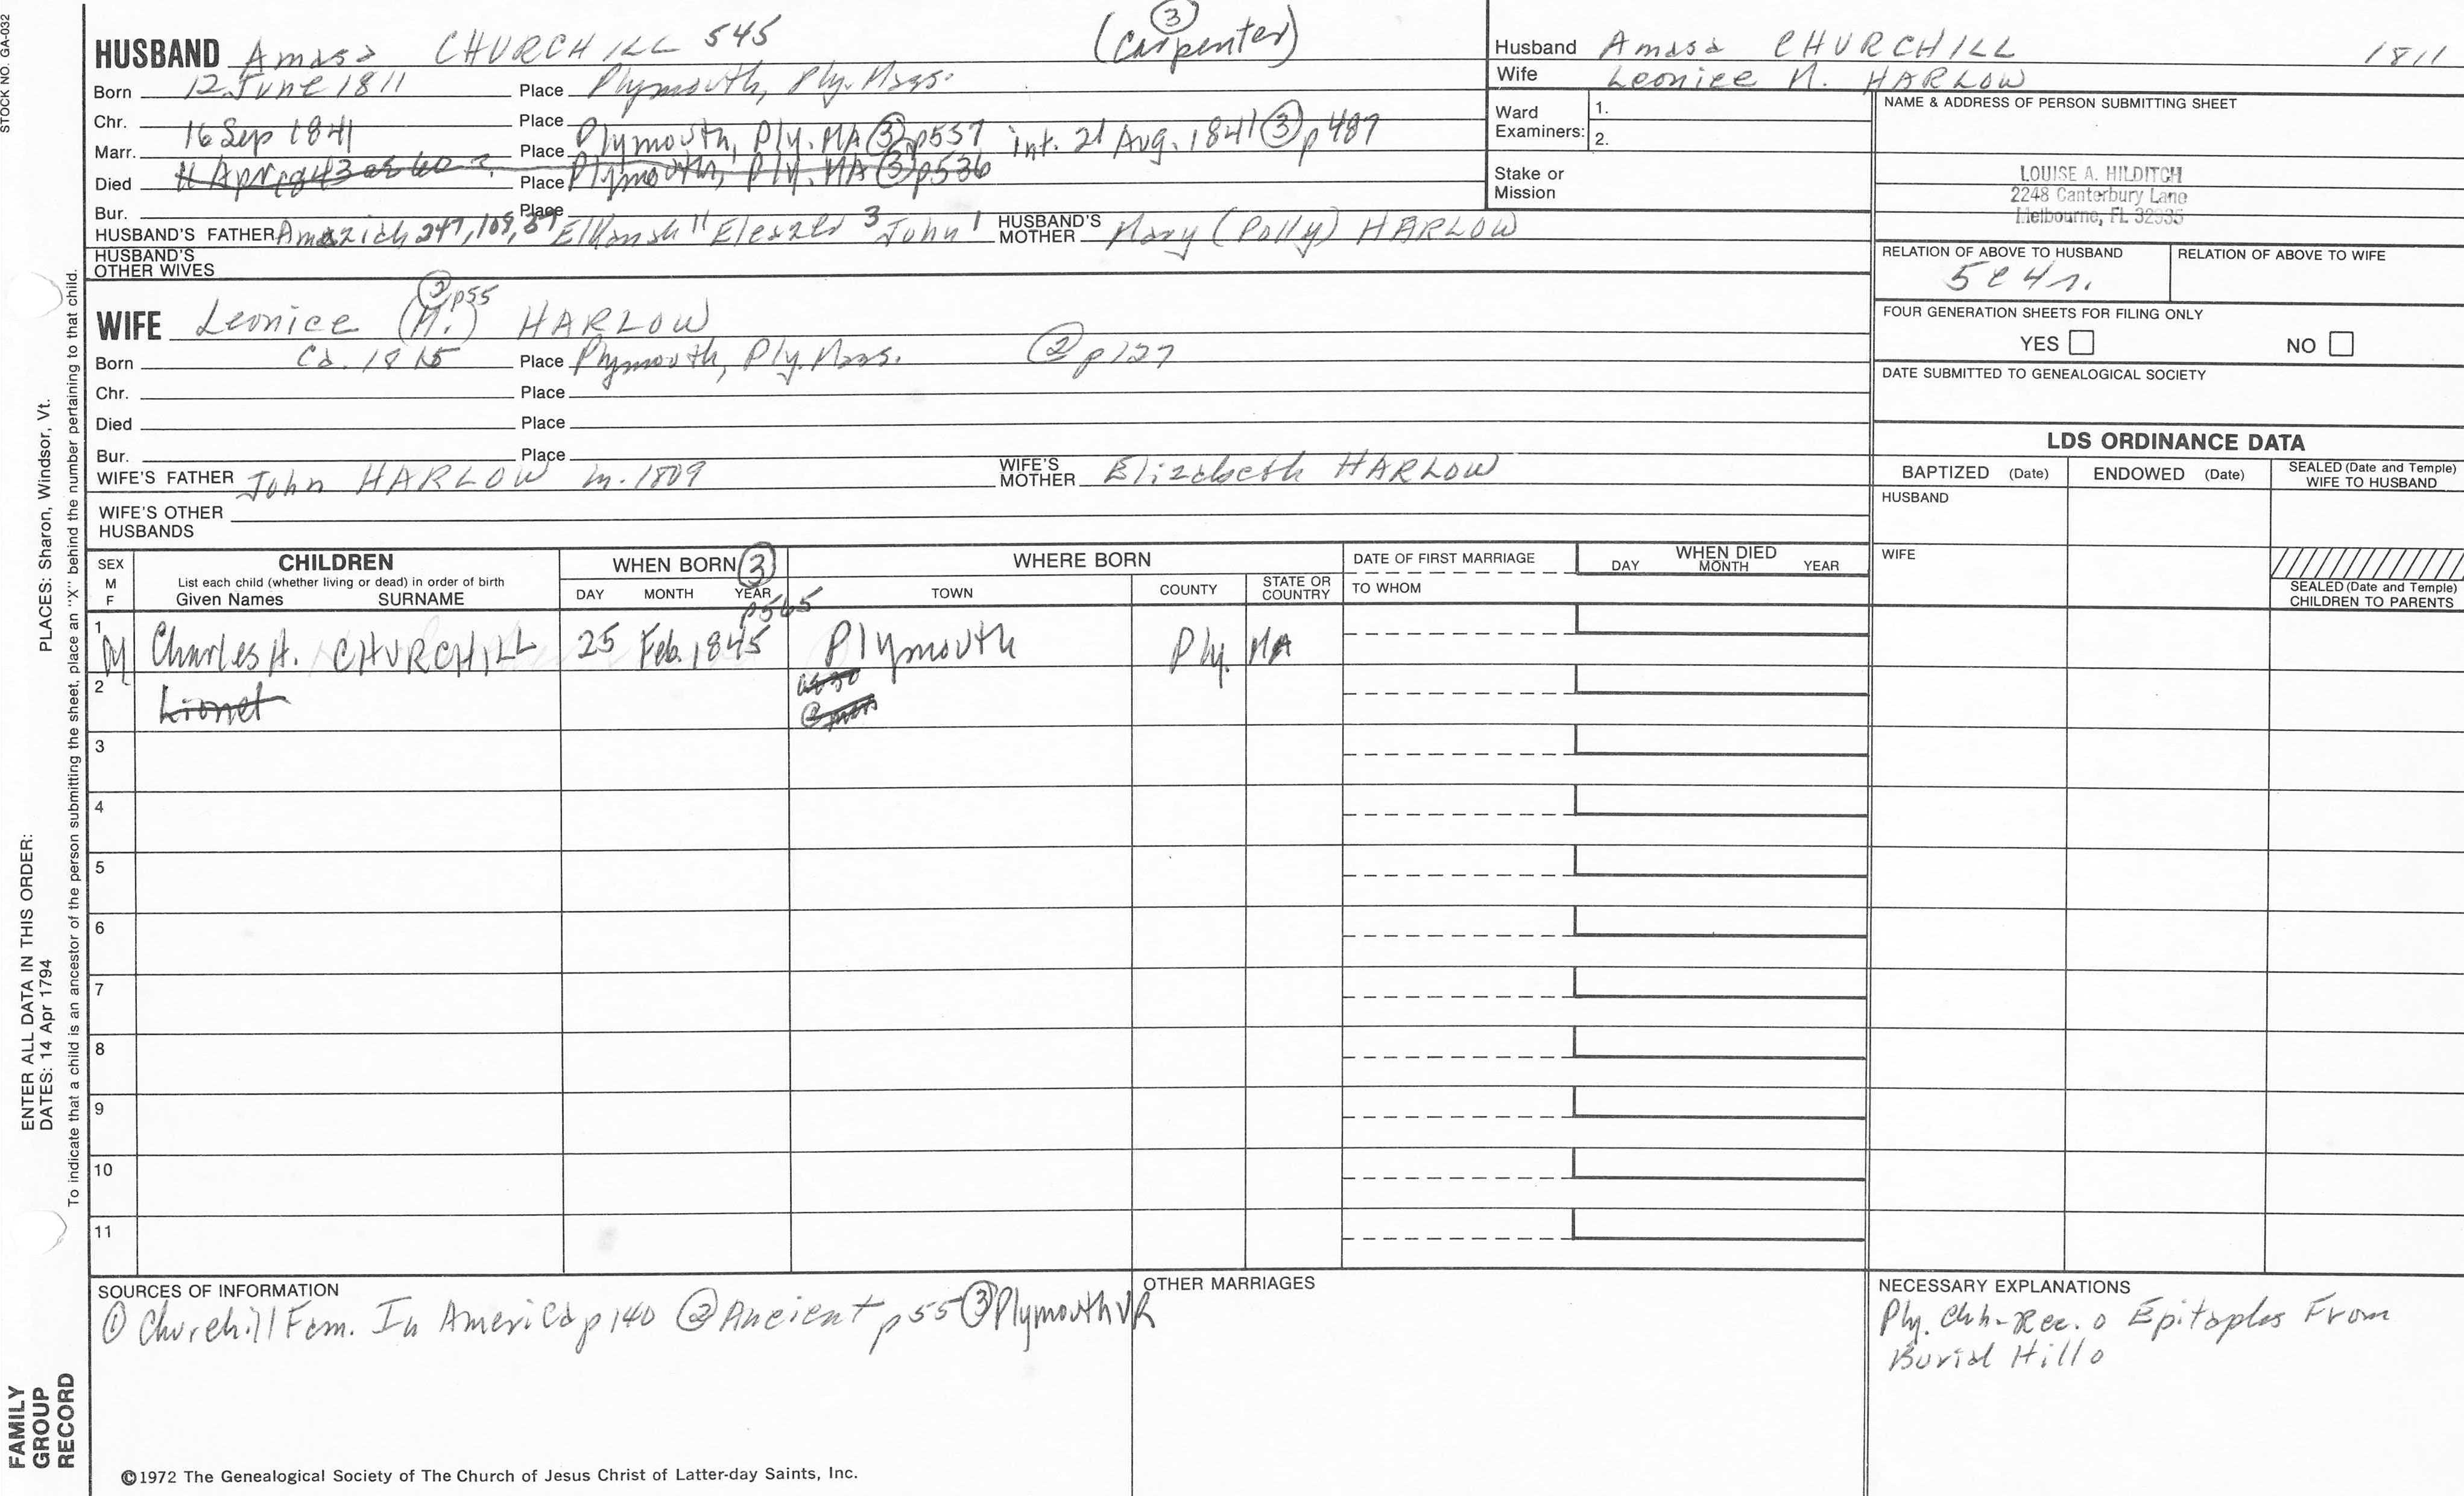 STOCK NO. GA-032
(3)
HUSBAND Amasa CHURCHILL 545 (Carpenter)
Born 12 June 1811 Place Plymouth, Ply. Mass.
Chr. Place
Marr. 16 Sep 1841 Place Plymouth, Ply. MA (3) p557 int. 21 Aug. 1841 (3) p487
Died Place Plymouth, Ply. MA (3) p536
Bur. Place
HUSBAND'S FATHER Amaziah 247, 109, 37 Elkanah 11 Eleazer 3 John 1 HUSBAND'S MOTHER Mary (Polly) HARLOW
HUSBAND'S OTHER WIVES
Husband Amasa CHURCHILL 1811
Wife Leonice M. HARLOW
Ward Examiners: 1.
2.
Stake or Mission
NAME & ADDRESS OF PERSON SUBMITTING SHEET
LOUISE A. HILDITCH
2248 Canterbury Lane
Melbourne, FL 32935
RELATION OF ABOVE TO HUSBAND RELATION OF ABOVE TO WIFE
5c4r.
FOUR GENERATION SHEETS FOR FILING ONLY
YES NO
DATE SUBMITTED TO GENEALOGICAL SOCIETY
(2) p55
WIFE Leonice (M.) HARLOW
Born Ca. 1815 Place Plymouth, Ply. Mass. (2) p127
Chr. Place
Died Place
Bur. Place
WIFE'S FATHER John HARLOW m. 1809 WIFE'S MOTHER Elizabeth HARLOW
WIFE'S OTHER HUSBANDS
LDS ORDINANCE DATA
BAPTIZED (Date) ENDOWED (Date) SEALED (Date and Temple) WIFE TO HUSBAND
HUSBAND
WIFE
SEALED (Date and Temple) CHILDREN TO PARENTS
SEX M F
CHILDREN
List each child (whether living or dead) in order of birth
Given Names SURNAME
WHEN BORN (3)
DAY MONTH YEAR
p565
WHERE BORN
TOWN COUNTY STATE OR COUNTRY
DATE OF FIRST MARRIAGE
TO WHOM
WHEN DIED
DAY MONTH YEAR
1 M Charles H. CHURCHILL 25 Feb. 1845 Plymouth Ply. MA
2 Lionel
3
4
5
6
7
8
9
10
11
SOURCES OF INFORMATION
① Churchill Fam. In America p140 ② Ancient p55 ③ Plymouth VR
OTHER MARRIAGES
NECESSARY EXPLANATIONS
Ply. Chh-Rec. o Epitaphs From
Burial Hill o
©1972 The Genealogical Society of The Church of Jesus Christ of Latter-day Saints, Inc.
FAMILY
GROUP
RECORD
ENTER ALL DATA IN THIS ORDER:
DATES: 14 Apr 1794
PLACES: Sharon, Windsor, Vt.
To indicate that a child is an ancestor of the person submitting the sheet, place an "X" behind the number pertaining to that child.